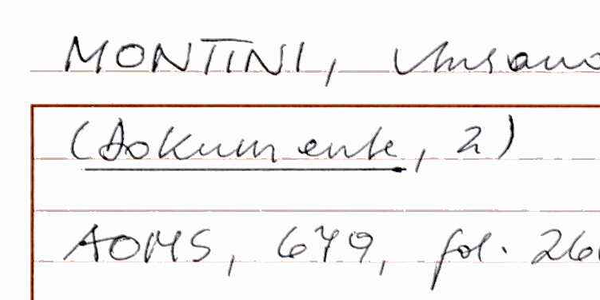 MONTINI,
(Dokumente, 2)
AOMS, 679, fol. 26